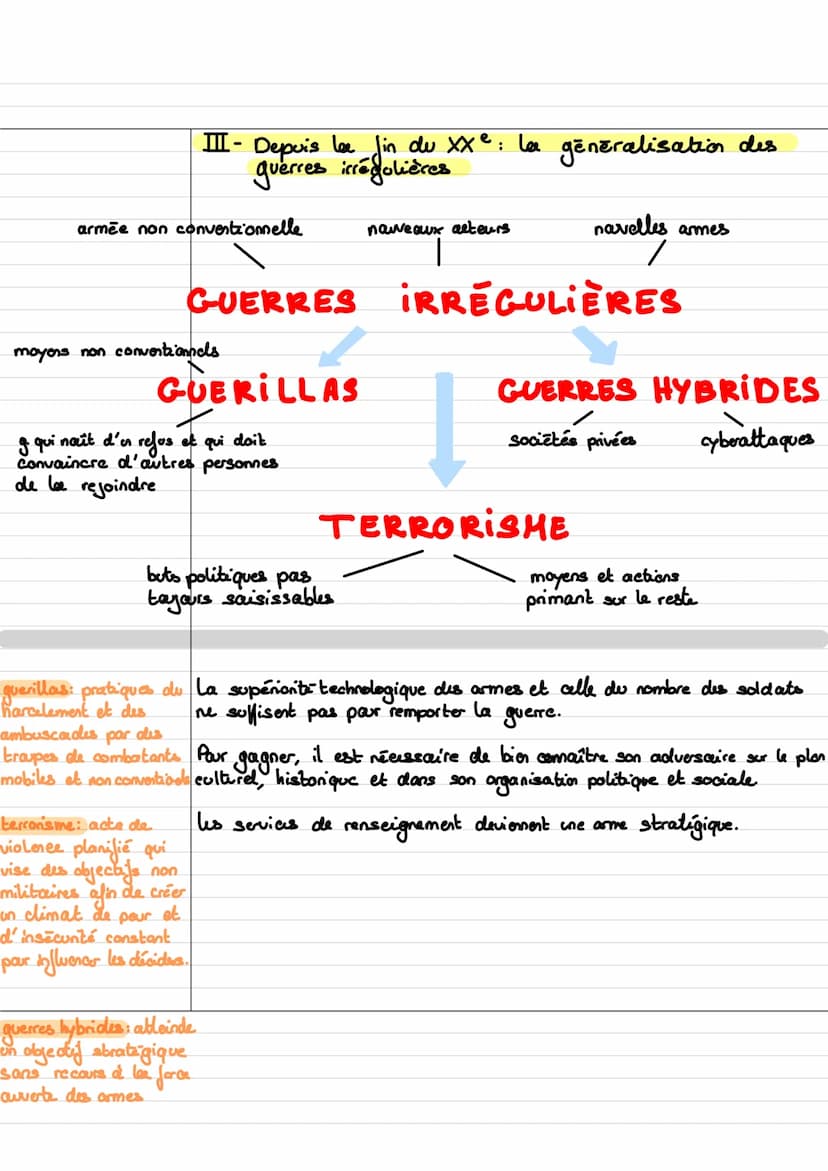 III - Depuis la fin du XXe : la généralisation des
guerres irrégulières
armée non conventionnelle
nouveaux acteurs
nouvelles armes
GUERRES IRRÉGULIÈRES
moyens non conventionnels
GUERILLAS
GUERRES HYBRIDES
g qui naît d'un refus et qui doit
convaincre d'autres personnes
de la rejoindre
sociétés privées
cyberattaques
TERRORISME
buts politiques pas
toujours saisissables
moyens et actions
primant sur le reste
guerillas : pratiques du
harcelement et des
ambuscades par des
troupes de combatants
mobiles et non conventionels
La supériorité technologique des armes et celle du nombre des soldats
ne suffisent pas pour remporter la guerre.
Pour gagner, il est nécessaire de bien connaître son adversaire sur le plan
culturel, historique et dans son organisation politique et sociale
terrorisme : acte de
violence planifié qui
vise des objectifs non
militaires afin de créer
un climat de peur et
d'insécurité constant
pour influencer les décideurs.
Les services de renseignement deviennent une arme stratégique.
guerres hybrides : atteinde
un objectif stratégique
sans recours à la force
ouverte des armes